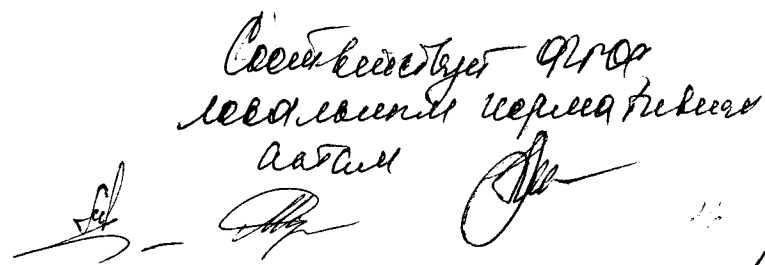 Соответствует ФГОС
локальным нормативным
актам